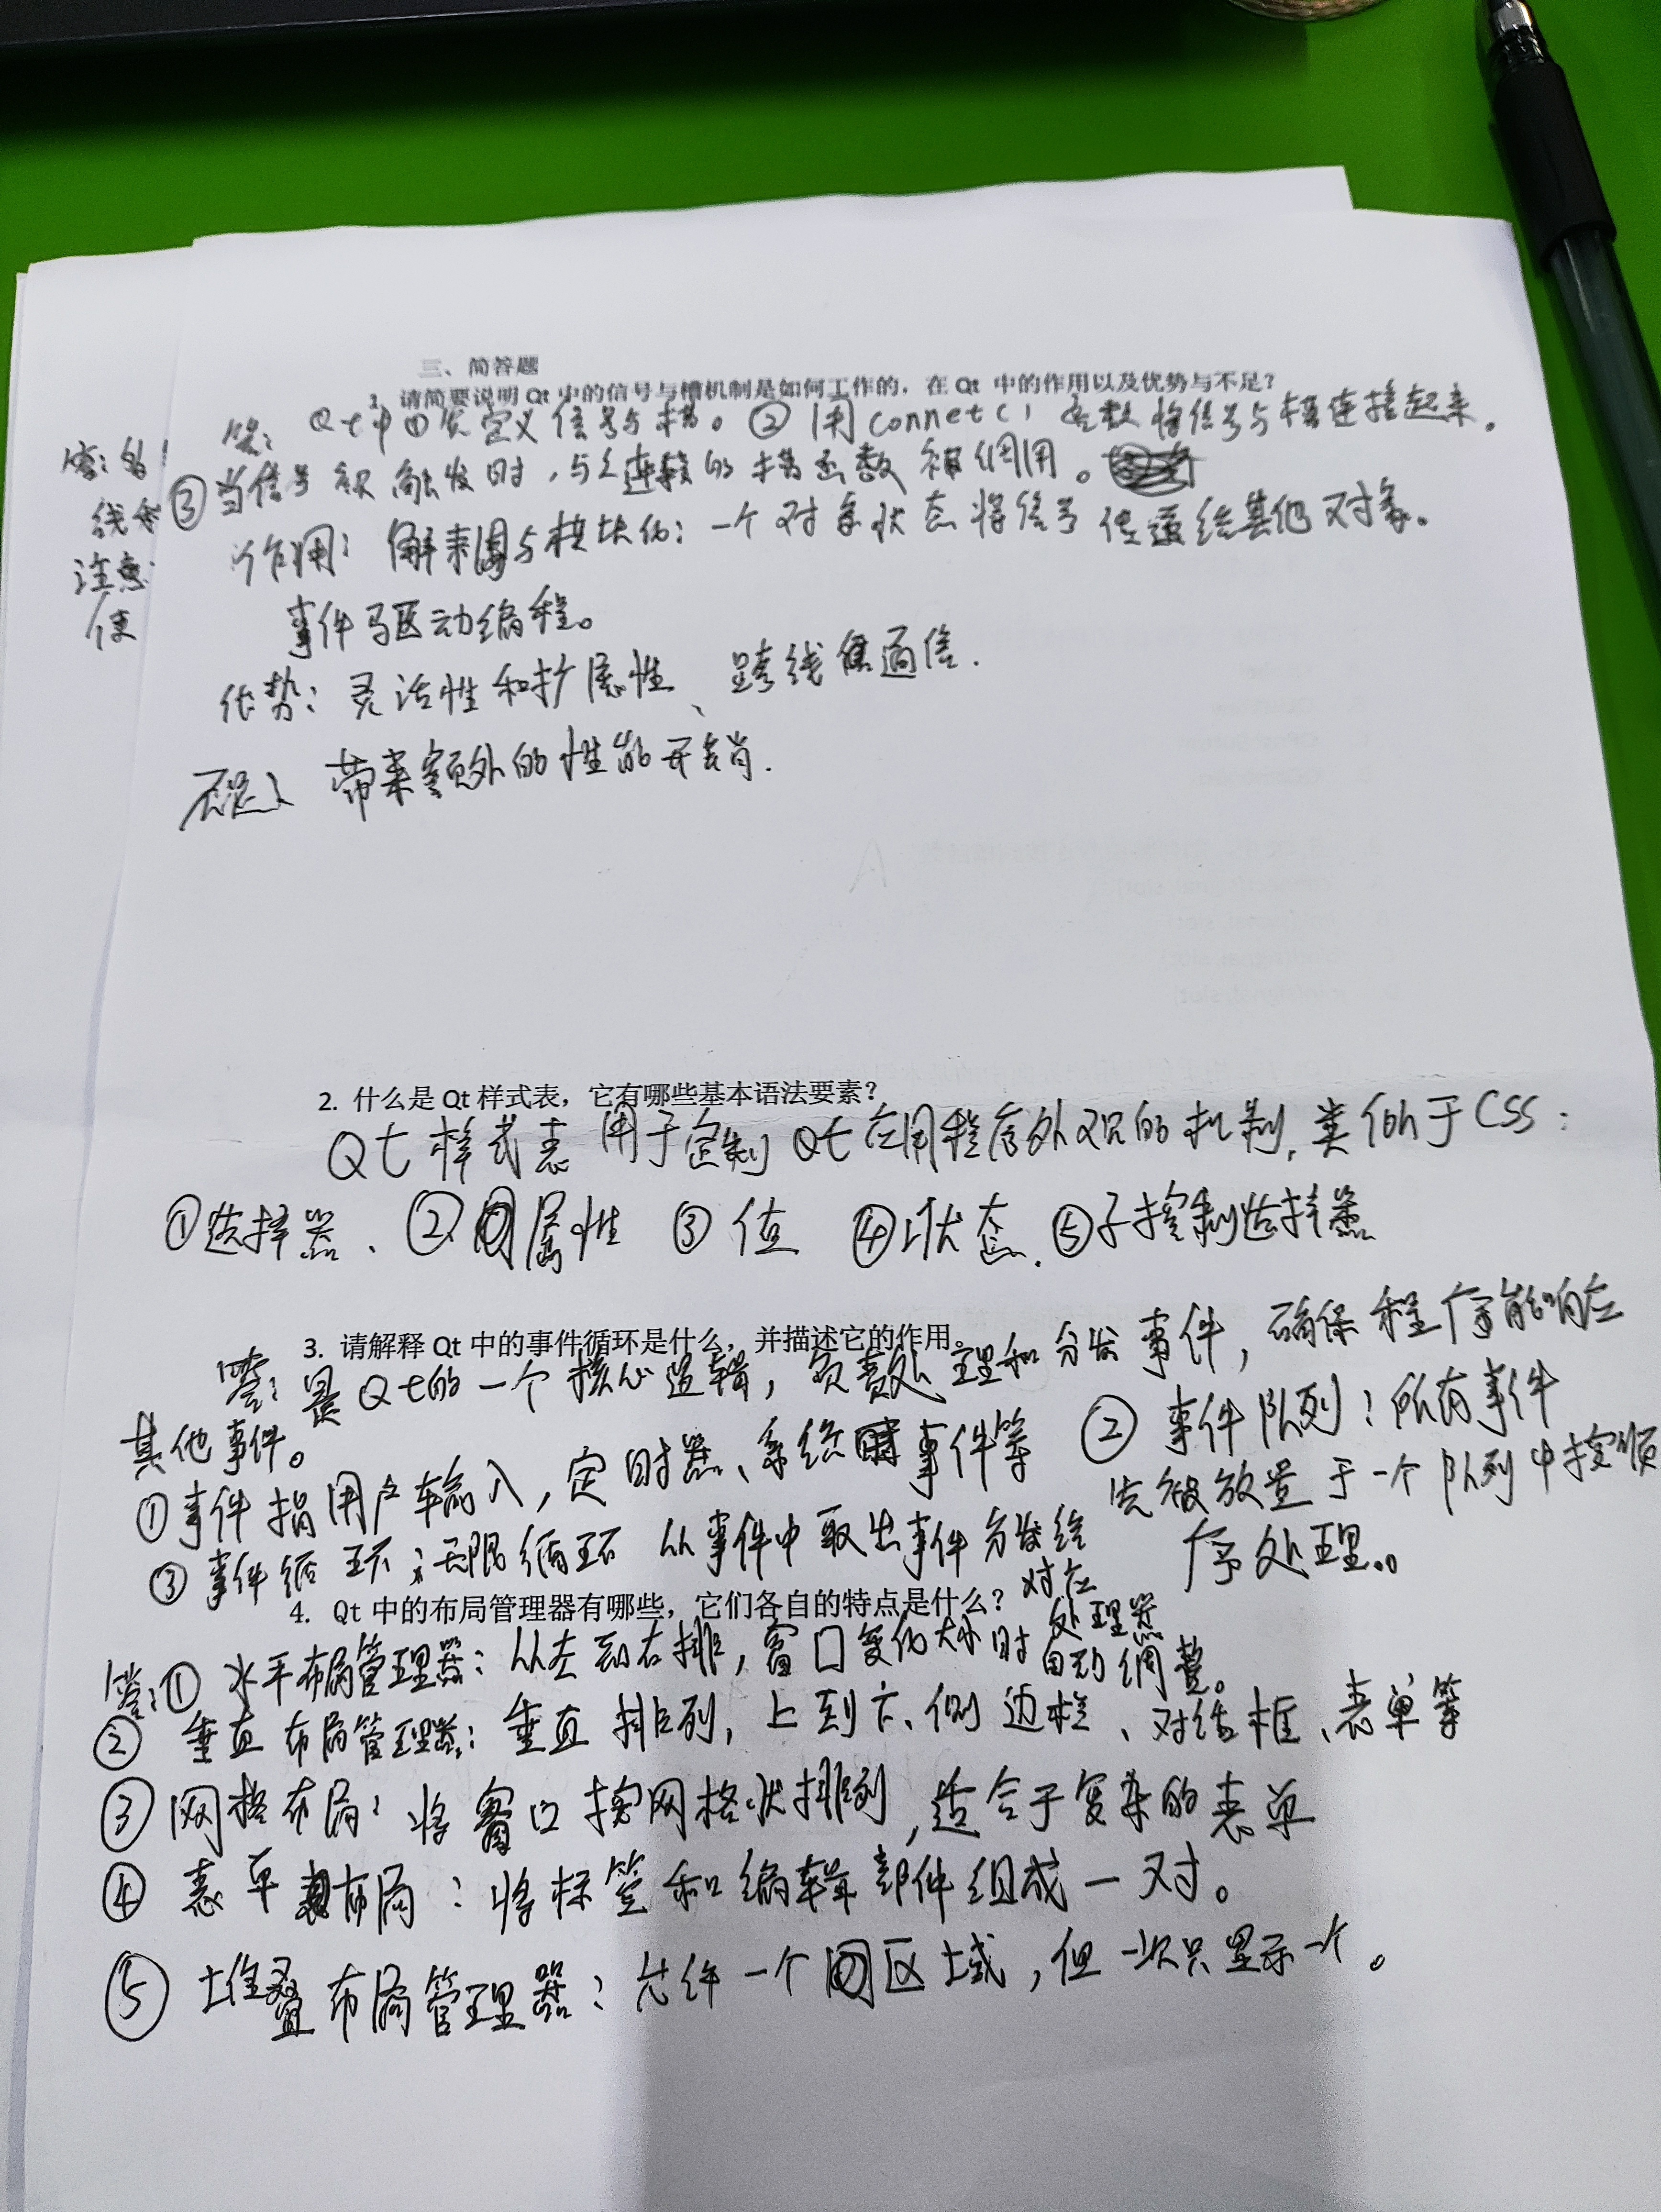 三、简答题
1. 请简要说明 Qt 中的信号与槽机制是如何工作的，在 Qt 中的作用以及优势与不足？
答： Qt中①先定义信号与槽。② 用 connect() 函数将信号与槽连接起来。
③当信号被触发时，与之连接的槽函数被调用。
作用：解耦与模块化：一个对象状态将信号传递给其他对象。
事件驱动编程。
优势：灵活性和扩展性、跨线程通信.
不足： 带来额外的性能开销.
答：
线
注意
使
2. 什么是 Qt 样式表，它有哪些基本语法要素？
Qt 样式表 用于定制 Qt应用程序外观的机制, 类似于 CSS：
①选择器、②属性 ③值 ④状态. ⑤子控制选择器
3. 请解释 Qt 中的事件循环是什么，并描述它的作用。
答：是Qt的一个核心逻辑，负责处理和分发事件，确保程序能响应
其他事件。
①事件指用户输入，定时器、系统事件等
②事件队列：所有事件
先被放置于一个队列中按顺
序处理。
③事件循环：无限循环 从事件中取出事件分发给
对应
处理器
4. Qt 中的布局管理器有哪些，它们各自的特点是什么？
答：① 水平布局管理器：从左到右排，窗口变化大小时自动调整。
② 垂直布局管理器：垂直排列，上到下、侧边栏、对话框、表单等
③ 网格布局：将窗口按网格状排列，适合于复杂的表单
④ 表单布局：将标签和编辑部件组成一对。
⑤ 堆叠布局管理器：允许一个区域，但一次只显示一个。